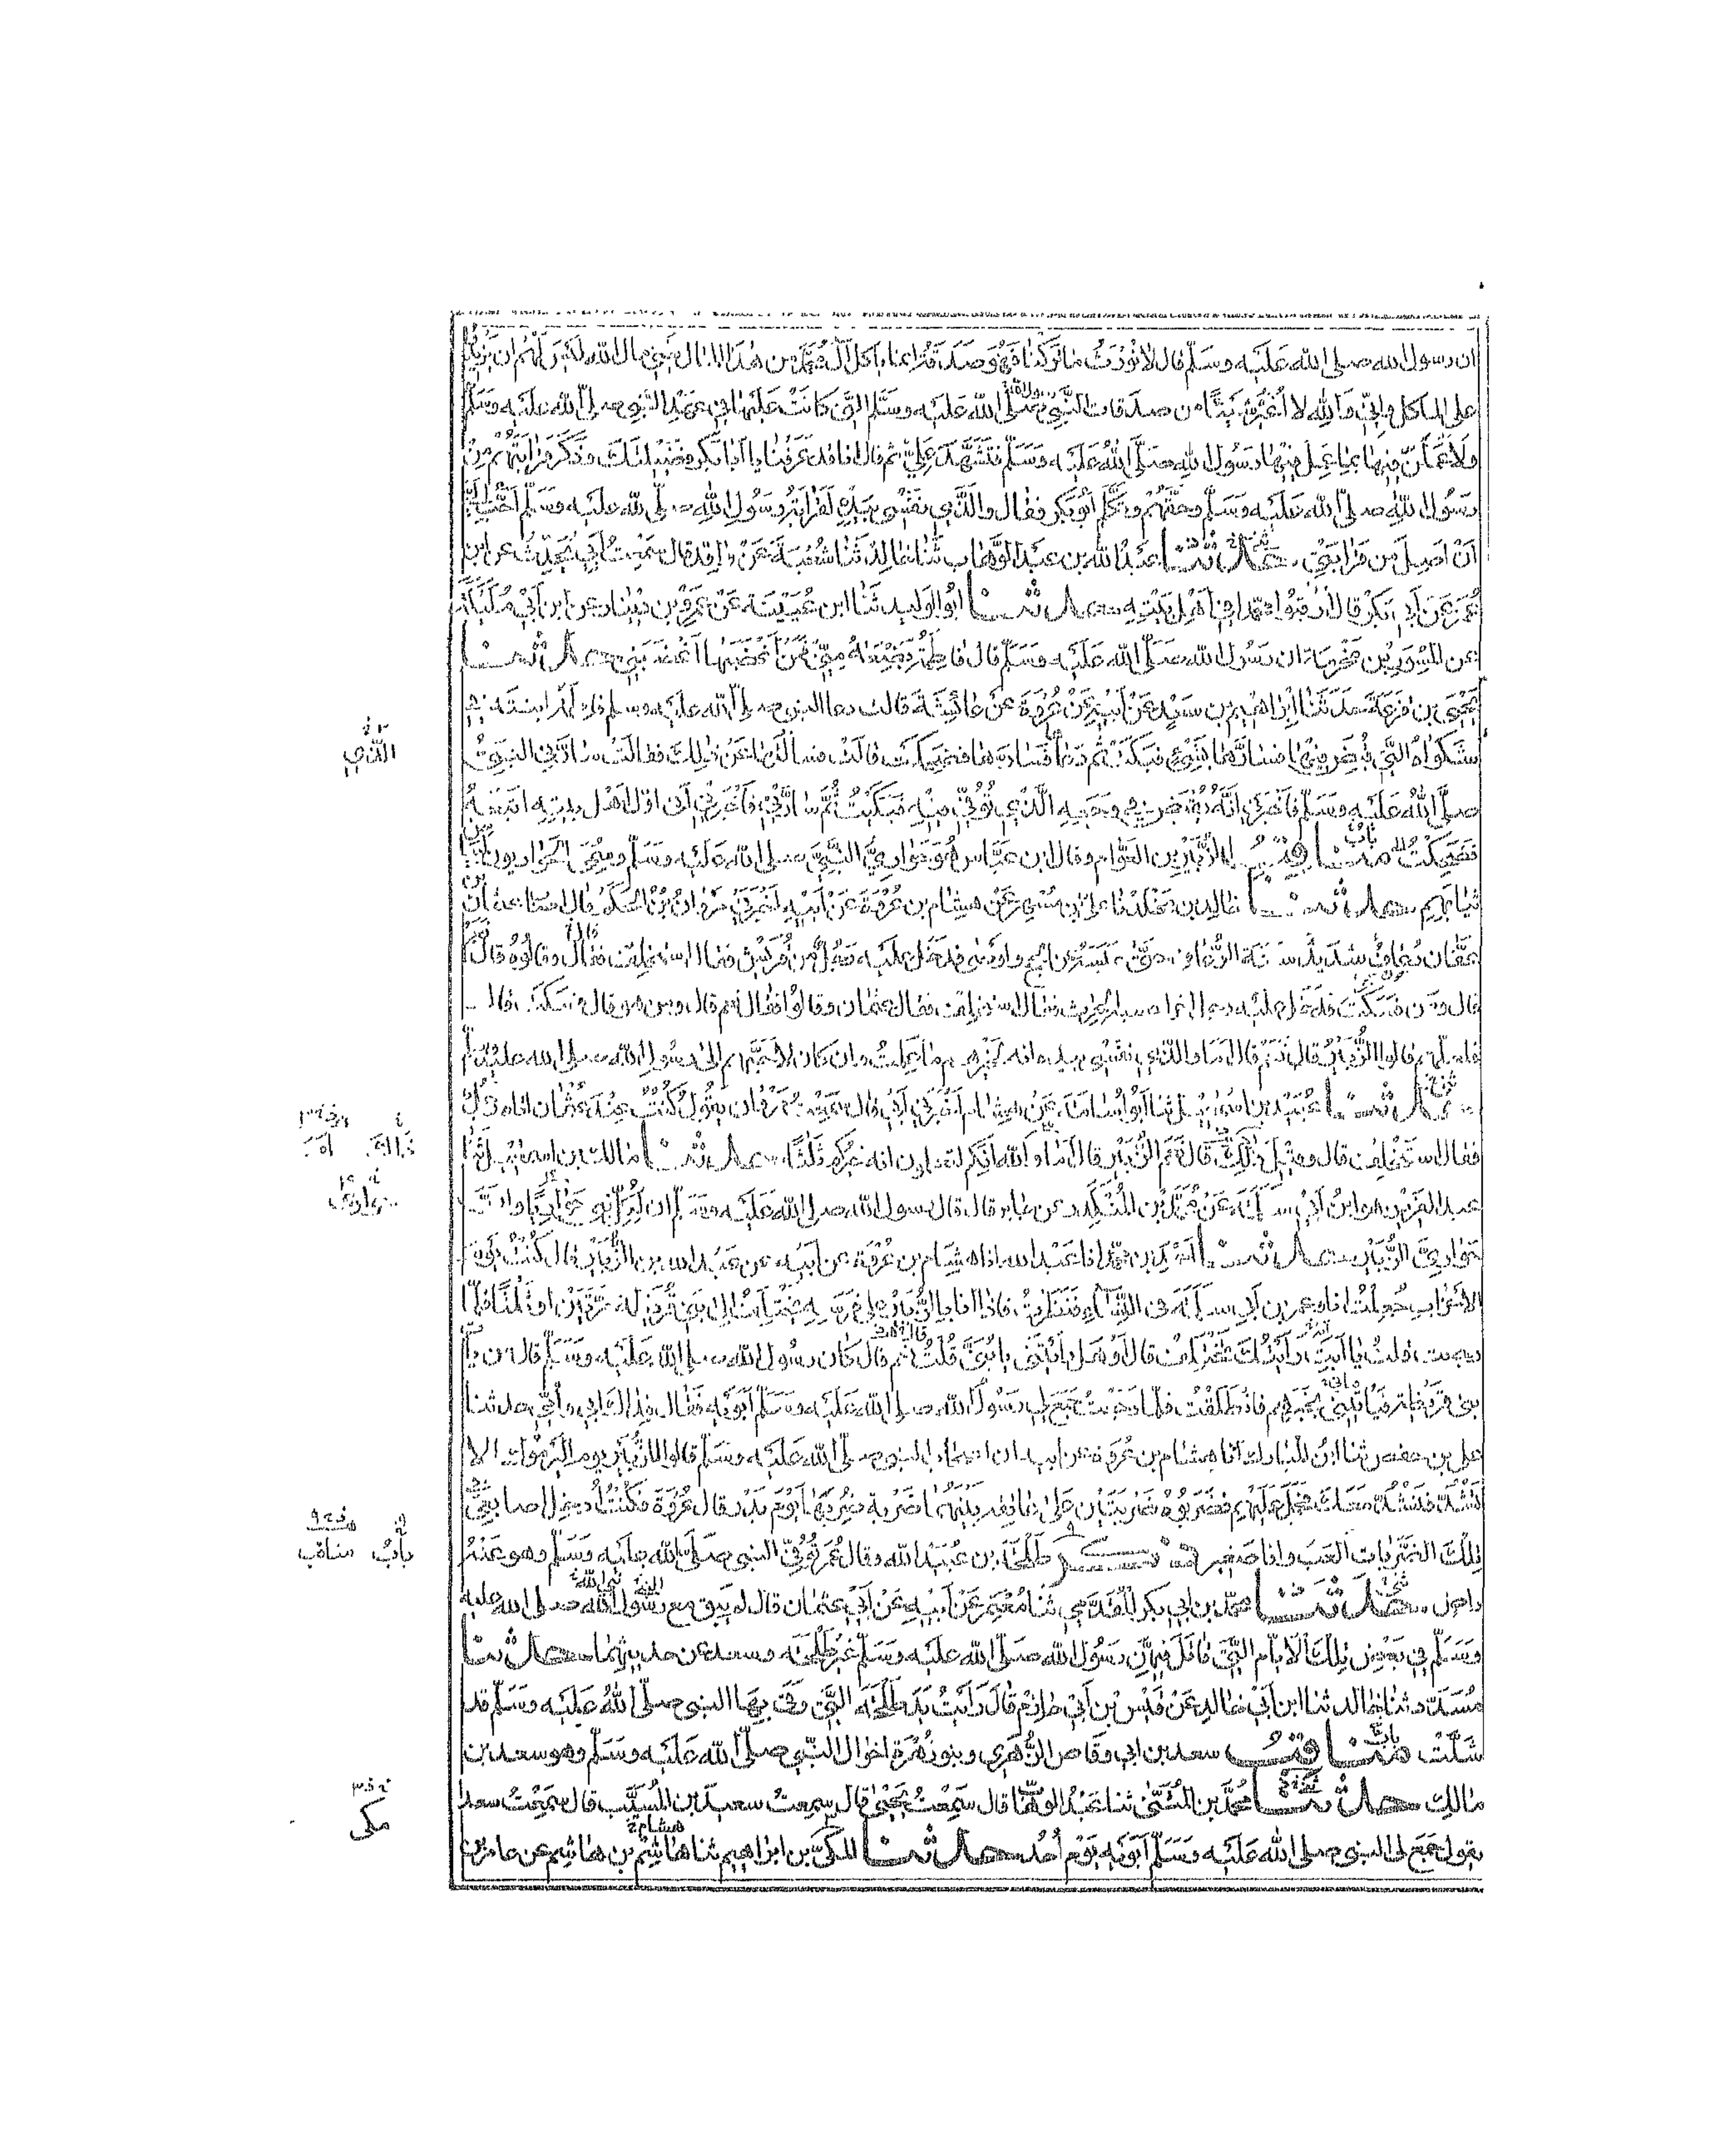 ان رسول الله صلى الله عَلَيْه وسَلّم قال لا نُورَثُ مَا تَرَكْنَا فَهُوَ صَدَقَةٌ انما يأكل آل مُحَمّد من هٰذا المال يَعْنِي مال الله لَيْسَ لَهُمْ ان يَزِيدُوا
على المأكل وإنّي وَاللهِ لا أُغَيِّرُ شَيْئًا من صدقات النَّبِيّ صَلَّى الله عَلَيْه وسَلَّم الَّتي كَانَتْ عَلَيْهَا في عَهْدِ النَّبِي صلى الله عَلَيْه وَسَلَّمَ
وَلَأَعْمَلَنَّ فِيْهَا بِمَا عَمِلَ فِيْهَا رَسُولُ اللهِ صَلَّى اللهُ عَلَيْه وَسَلَّمَ فَتَشَهَّدَ عَلِيّ ثم قال انا قد عَرَفْنَا يا أبَا بَكْر فضيلتك وذَكَرَ قَرَابَتَهُمْ مِنْ
رَسُولِ اللهِ صلّى الله عَلَيْه وَسَلَّم وحَقَّهُمْ وتَكَلَّمَ أَبُو بَكر فقال والَّذِي نَفْسِي بِيَدِه لَقَرَابَةُ رَسُولِ اللهِ صلّى الله عليه وسَلّم أَحَبُّ إلَيَّ
أَنْ أَصِلَ من قَرَابَتِي حَدَّثَنَا عَبْدُ الله بن عَبْدِ الوَهَّاب ثَنَا خَالِدٌ ثَنَا شُعْبَة عَنْ وَاقِد قال سَمِعْتُ أَبي يُحَدِّثُ عن ابن
عُمَرَ عَن أبي بَكْر قال ارْقُبُوا محمّدا في أَهْلِ بَيْتِه حدثنا ابو الوليد ثَنَا ابن عُيَيْنَة عَنْ عَمْرو بن دِيْنَار عن ابن أَبِي مُلَيْكَة
عن المِسْوَر بن مَخْرمة ان رَسُولَ الله صَلَّى الله عَلَيْه وَسَلَّم قال فَاطِمَةُ بَضْعَةٌ مِنِّي فَمَنْ أَغْضَبَهَا أَغْضَبَنِي حدثنا
يَحْيَى بن قَزَعَة حَدَّثَنَا إبْرَاهِيم بن سَعْدٍ عَنْ أَبِيْهِ عَنْ عُرْوَة عَنْ عَائِشَة قَالت دعا النبي صلى الله عليه وسلم فاطمة ابنته في
شَكْوَاهُ الَّتي قُبِضَ فِيْهَا فسارَّهَا بِشَيْءٍ فبَكَتْ ثم دَعَاهَا فسارَّهَا فضحِكت قالت فسألتُها عَنْ ذٰلك فقالت سارَّني النبيُّ
صلَّى اللهُ عَلَيْه وَسَلَّم فَأَخْبَرَني أَنَّهُ يُقْبَضُ في وجَعِه الَّذِي تُوُفِّيَ فِيْهِ فَبَكَيْتُ ثُمَّ سَارَّنِي فَأَخْبَرَنِي أَنّي اوّل اهْل بيته اتبعهُ
فَضَحِكْتُ باب مناقب الزُّبَيْر بن العَوَّام وقال ابن عَبَّاس هُوَ حَوَارِيُّ النَّبِيِّ صلى الله عَلَيْه وَسَلَّم وسُمِّيَ الحَوَاريون لِبَيَاض
ثِيَابِهِم حدثنا خالد بن مَخْلَد ثنا علي بن مُسْهِر عَنْ هِشَام بن عُرْوَة عَنْ أَبِيْهِ أَخْبَرَنِي مَرْوَانُ بْنُ الحَكَم قال أصابَ عُثْمَانَ بن
عَفَّان رُعَافٌ شَدِيدٌ سَنَة الرُّعَاف حَتّى حَبَسَهُ عن الحَج وأوصى فدخل عليه رَجُلٌ مِنْ قُرَيْش فقال استخلف فقال وقالُوهُ قال نعم
قال ومن فَسَكَتَ فدخل عليه رجل آخر احسبه الحارث فقال استخلف فقال عثمان وقالوا فقال نعم قال ومن هو قال فسكت قال
فلعلّهم قالوا الزُّبَيْرُ قال نَعَمْ قال أمَا والَّذي نَفْسِي بيده انه لخيرهم مَا عَلِمْتُ وان كان لأحَبَّهُم إلى رسول الله صلى الله عليه وسلم
حدثنا عُبَيْد بن اسمٰعِيْل ثنا أَبُو أُسَامَة عَنْ هِشَام أَخْبَرَنِي أَبِي قال سَمِعْتُ مَرْوَان يقول كُنْتُ عِنْدَ عُثْمَان اتاه رَجُلٌ
فقال استَخْلِفْ قال وقِيْلَ ذٰلِكَ قال نَعَمْ الزُّبَيْر قال أَمَا وَالله إِنَّكُم لتعلمون انه خَيْرُكُم ثَلٰثًا حدثنا مالك بن اسمعيل ثَنَا
عبد العزيز هو ابن أبي سلمة عَنْ مُحَمَّد بْن المُنْكَدِر عن جابر قال قال رسول الله صلى الله عَلَيْه وسلم إن لِكُلِّ نبي حَوَارِيًّا وان
حَوَارِيَّ الزُّبَيْر حدثنا احمد بن محمد انا عَبْد الله انا هِشَام بن عُرْوَة عن أبيْه عن عَبْد الله بن الزُّبَيْر قال كُنْتُ يَوْمَ
الأَحْزَاب جُعِلْتُ انا وعمر بن أَبي سَلَمَة في النِّسَاء فَنَظَرْتُ فاذا انا بالزُّبَيْر على فَرَسِه يَخْتَلِفُ إلى بَنِي قُرَيْظَة مَرَّتَيْن او ثلثًا فلمّا
رجعت قلتُ يَا أبَتِ رَأَيْتُكَ تَخْتَلِفُ قال أَوَ هَل رَأَيْتَنِي يا بُنَيَّ قُلْتُ نعم قال كان رسُول الله صلى الله عَلَيْه وَسَلَّم قال من يأت
بني قريظة فيَأْتِيْنِي بِخَبَرِهِم فانطَلَقْتُ فلمّا رَجَعْتُ جَمَعَ لي رَسُولُ الله صلى الله عَلَيْه وسَلّم أَبَوَيْه فقَال فداك أبي وأمي حدثنا
علي بن حفص ثنا ابْنُ المُبَارك انا هِشَام بن عُرْوَة عن ابيه ان اصحاب النبي صلى الله عَلَيْه وَسَلَّم قالوا للزُّبَيْر يوم اليَرْمُوك الا
تَشُدُّ فنَشُدّ مَعَكَ فحَمَلَ عَلَيْهِم فضَرَبُوهُ ضَرْبَتَيْن عَلى عَاتِقِه بَيْنَهُمَا ضَرْبة ضُرِبَهَا يَوْمَ بَدْر قال عُرْوَة فَكُنْتُ أُدخِلُ اصابعِي في
تِلْكَ الضَّرَبَات العَبُ وانا صَغِير ذكر طَلْحَة بن عُبَيْد الله وقال عُمَر تُوُفِّيَ النبي صلّى الله عليه وَسَلَّم وهو عَنْهُ
راض حَدَّثَنَا محمّد بن ابي بكر المُقَدَّمِي ثنا مُعْتَمِر عَنْ أَبِيْهِ عَنْ أَبِي عثمَان قال لم يَبْق مع رَسُول الله صلى الله عليه
وَسَلَّم فِي بَعْضِ تِلْكَ الأيّام الَّتِي قَاتَلَ فِيْهِنَّ رَسُول الله صَلّى الله عليه وسَلَّم غيرُ طَلْحَة وسعد عن حديثِهِمَا حدثنا
مُسَدَّد ثنا خالد ثنا ابن أَبِي خالد عَنْ قَيْس بْن أَبِي حَازِم قال رَأَيْتُ يَدَ طَلْحَة الَّتي وَقَى بِهَا النبي صلّى اللهُ عَلَيْه وَسَلَّم قد
شَلَّت باب مَنَاقِبُ سعد بن ابي وقَّاص الزُّهري وبنو زُهْرَة اخوال النَّبي صلى الله عَلَيْه وَسَلَّم وهو سعد بن
مالك حدثنا مُحَمَّد بن المُثَنَّى ثنا عَبْدُ الوهّاب قال سَمِعْتُ يَحْيَى قال سمعتُ سعيد بن المُسَيَّب قال سَمِعْتُ سعدا
يقول جَمَعَ لي النبي صلى الله عَلَيْه وَسَلَّم أَبَوَيْه يَوْمَ أُحُد حدثنا المكيّ بن ابراهيم ثنا هاشِمُ بن هاشم عن عامر بن
الَّذِي
ذٰلِكَ
باب مناقب
مكي